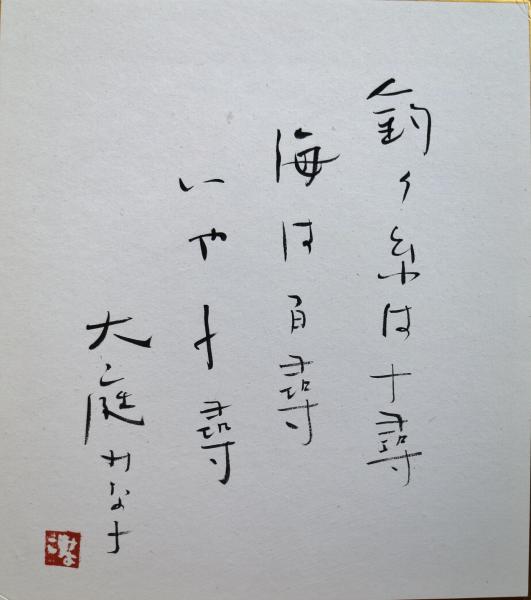 釣り糸は十尋
海は百尋
いや千尋
大庭みな子